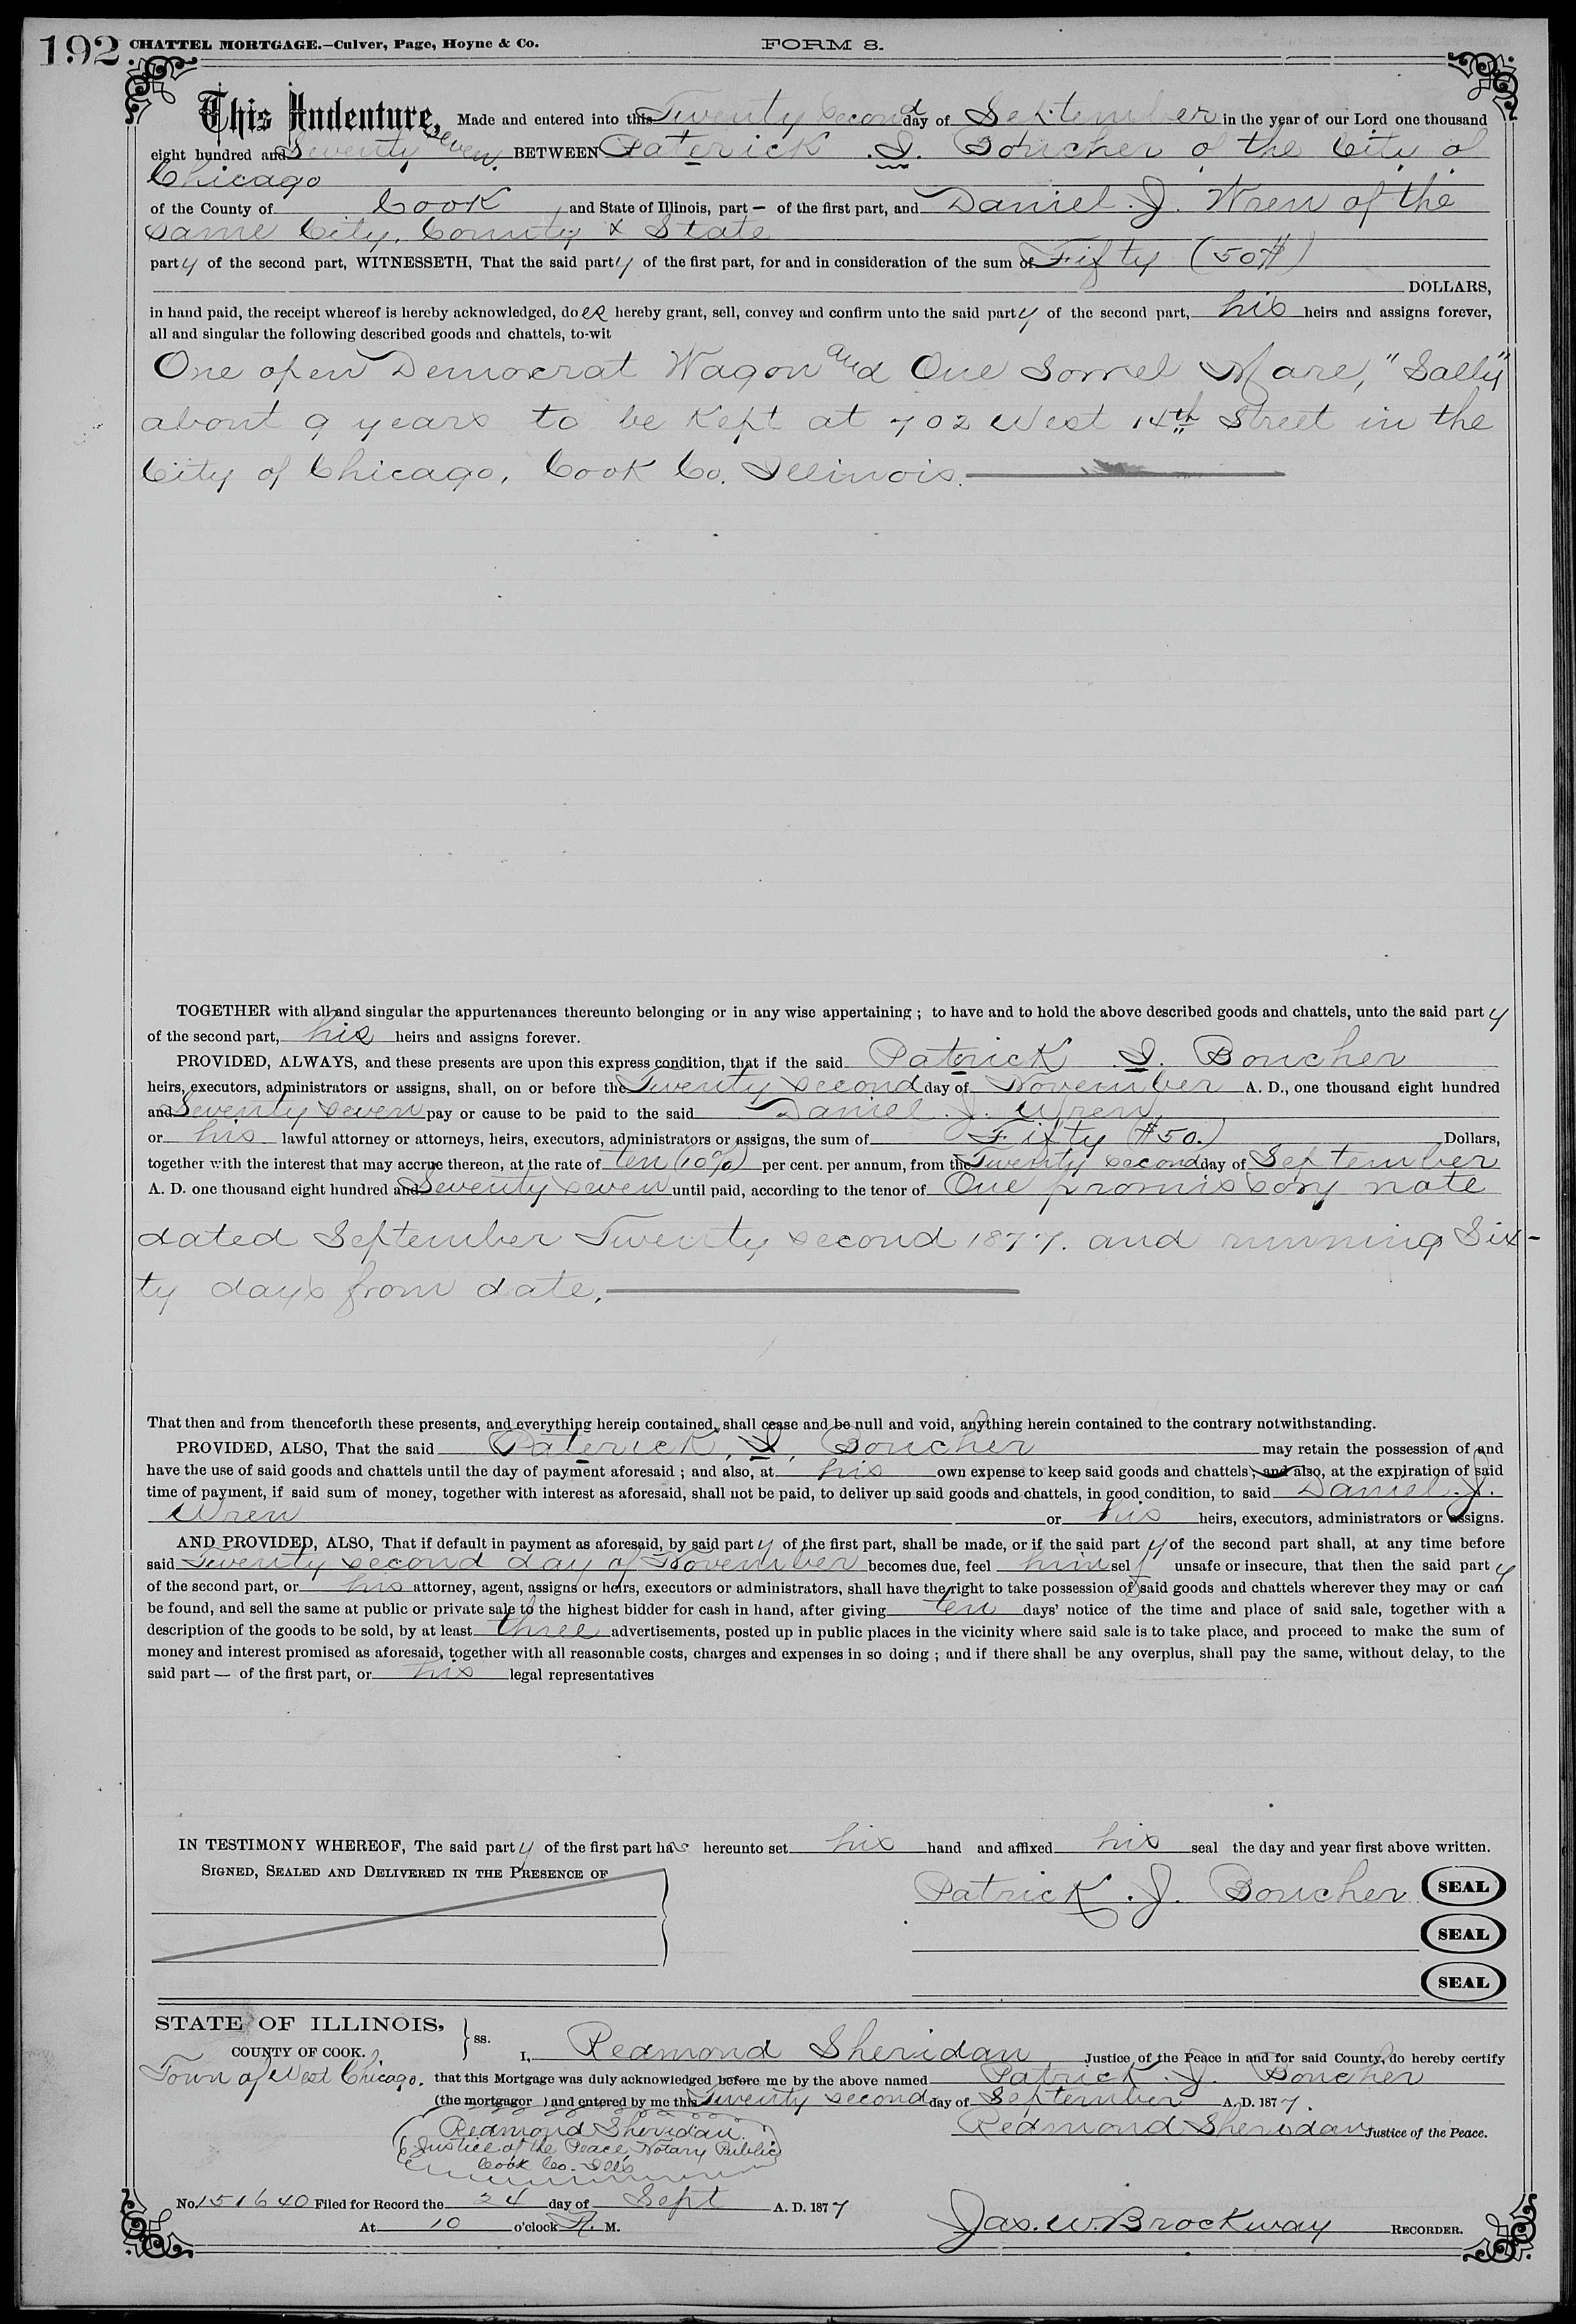 192 CHATTEL MORTGAGE.—Culver, Page, Hoyne & Co. FORM 8.
This Indenture, Made and entered into this Twenty Second day of September in the year of our Lord one thousand
eight hundred and Seventy Seven. BETWEEN Paterick .I. Boucher of the City of
Chicago
of the County of Cook, and State of Illinois, part — of the first part, and Daniel. J. Wren of the
same City, County & State
party of the second part, WITNESSETH, That the said party of the first part, for and in consideration of the sum of Fifty (50$)
DOLLARS,
in hand paid, the receipt whereof is hereby acknowledged, does hereby grant, sell, convey and confirm unto the said party of the second part, his heirs and assigns forever,
all and singular the following described goods and chattels, to-wit
One open Democrat Wagon and One Sorrel Mare, "Sally"
about 9 years to be Kept at 702 West 14th Street in the
City of Chicago, Cook Co. Illinois.
TOGETHER with all and singular the appurtenances thereunto belonging or in any wise appertaining ; to have and to hold the above described goods and chattels, unto the said party
of the second part, his heirs and assigns forever.
PROVIDED, ALWAYS, and these presents are upon this express condition, that if the said Paterick I. Boucher
heirs, executors, administrators or assigns, shall, on or before the Twenty second day of November A. D., one thousand eight hundred
and Seventy Seven pay or cause to be paid to the said Daniel. J. Wren
or his lawful attorney or attorneys, heirs, executors, administrators or assigns, the sum of Fifty ($50.) Dollars,
together with the interest that may accrue thereon, at the rate of ten (10%) per cent. per annum, from the Twenty second day of September
A. D. one thousand eight hundred and Seventy seven until paid, according to the tenor of One promissory note
dated September Twenty second 1877. and running Six-
ty days from date.
That then and from thenceforth these presents, and everything herein contained, shall cease and be null and void, anything herein contained to the contrary notwithstanding.
PROVIDED, ALSO, That the said Paterick, I, Boucher may retain the possession of and
have the use of said goods and chattels until the day of payment aforesaid ; and also, at his own expense to keep said goods and chattels ; and also, at the expiration of said
time of payment, if said sum of money, together with interest as aforesaid, shall not be paid, to deliver up said goods and chattels, in good condition, to said Daniel. J.
Wren or his heirs, executors, administrators or assigns.
AND PROVIDED, ALSO, That if default in payment as aforesaid, by said party of the first part, shall be made, or if the said party of the second part shall, at any time before
said Twenty second day of November becomes due, feel himself unsafe or insecure, that then the said party
of the second part, or his attorney, agent, assigns or heirs, executors or administrators, shall have the right to take possession of said goods and chattels wherever they may or can
be found, and sell the same at public or private sale to the highest bidder for cash in hand, after giving ten days' notice of the time and place of said sale, together with a
description of the goods to be sold, by at least three advertisements, posted up in public places in the vicinity where said sale is to take place, and proceed to make the sum of
money and interest promised as aforesaid, together with all reasonable costs, charges and expenses in so doing ; and if there shall be any overplus, shall pay the same, without delay, to the
said part — of the first part, or his legal representatives
IN TESTIMONY WHEREOF, The said party of the first part has hereunto set his hand and affixed his seal the day and year first above written.
SIGNED, SEALED AND DELIVERED IN THE PRESENCE OF
Patrick .J. Boucher SEAL
SEAL
SEAL
STATE OF ILLINOIS, } ss.
COUNTY OF COOK.
I, Redmond Sheridan Justice of the Peace in and for said County, do hereby certify
Town of West Chicago. that this Mortgage was duly acknowledged before me by the above named Patrick. J. Boucher
(the mortgagor ) and entered by me this Twenty second day of September A. D. 1877.
Redmond Sheridan Justice of the Peace.
Redmond Sheridan.
Justice of the Peace, Notary Public
Cook Co. Ills
No. 151640 Filed for Record the 24 day of Sept A. D. 1877
At 10 o'clock A. M.
Jas. W. Brockway RECORDER.